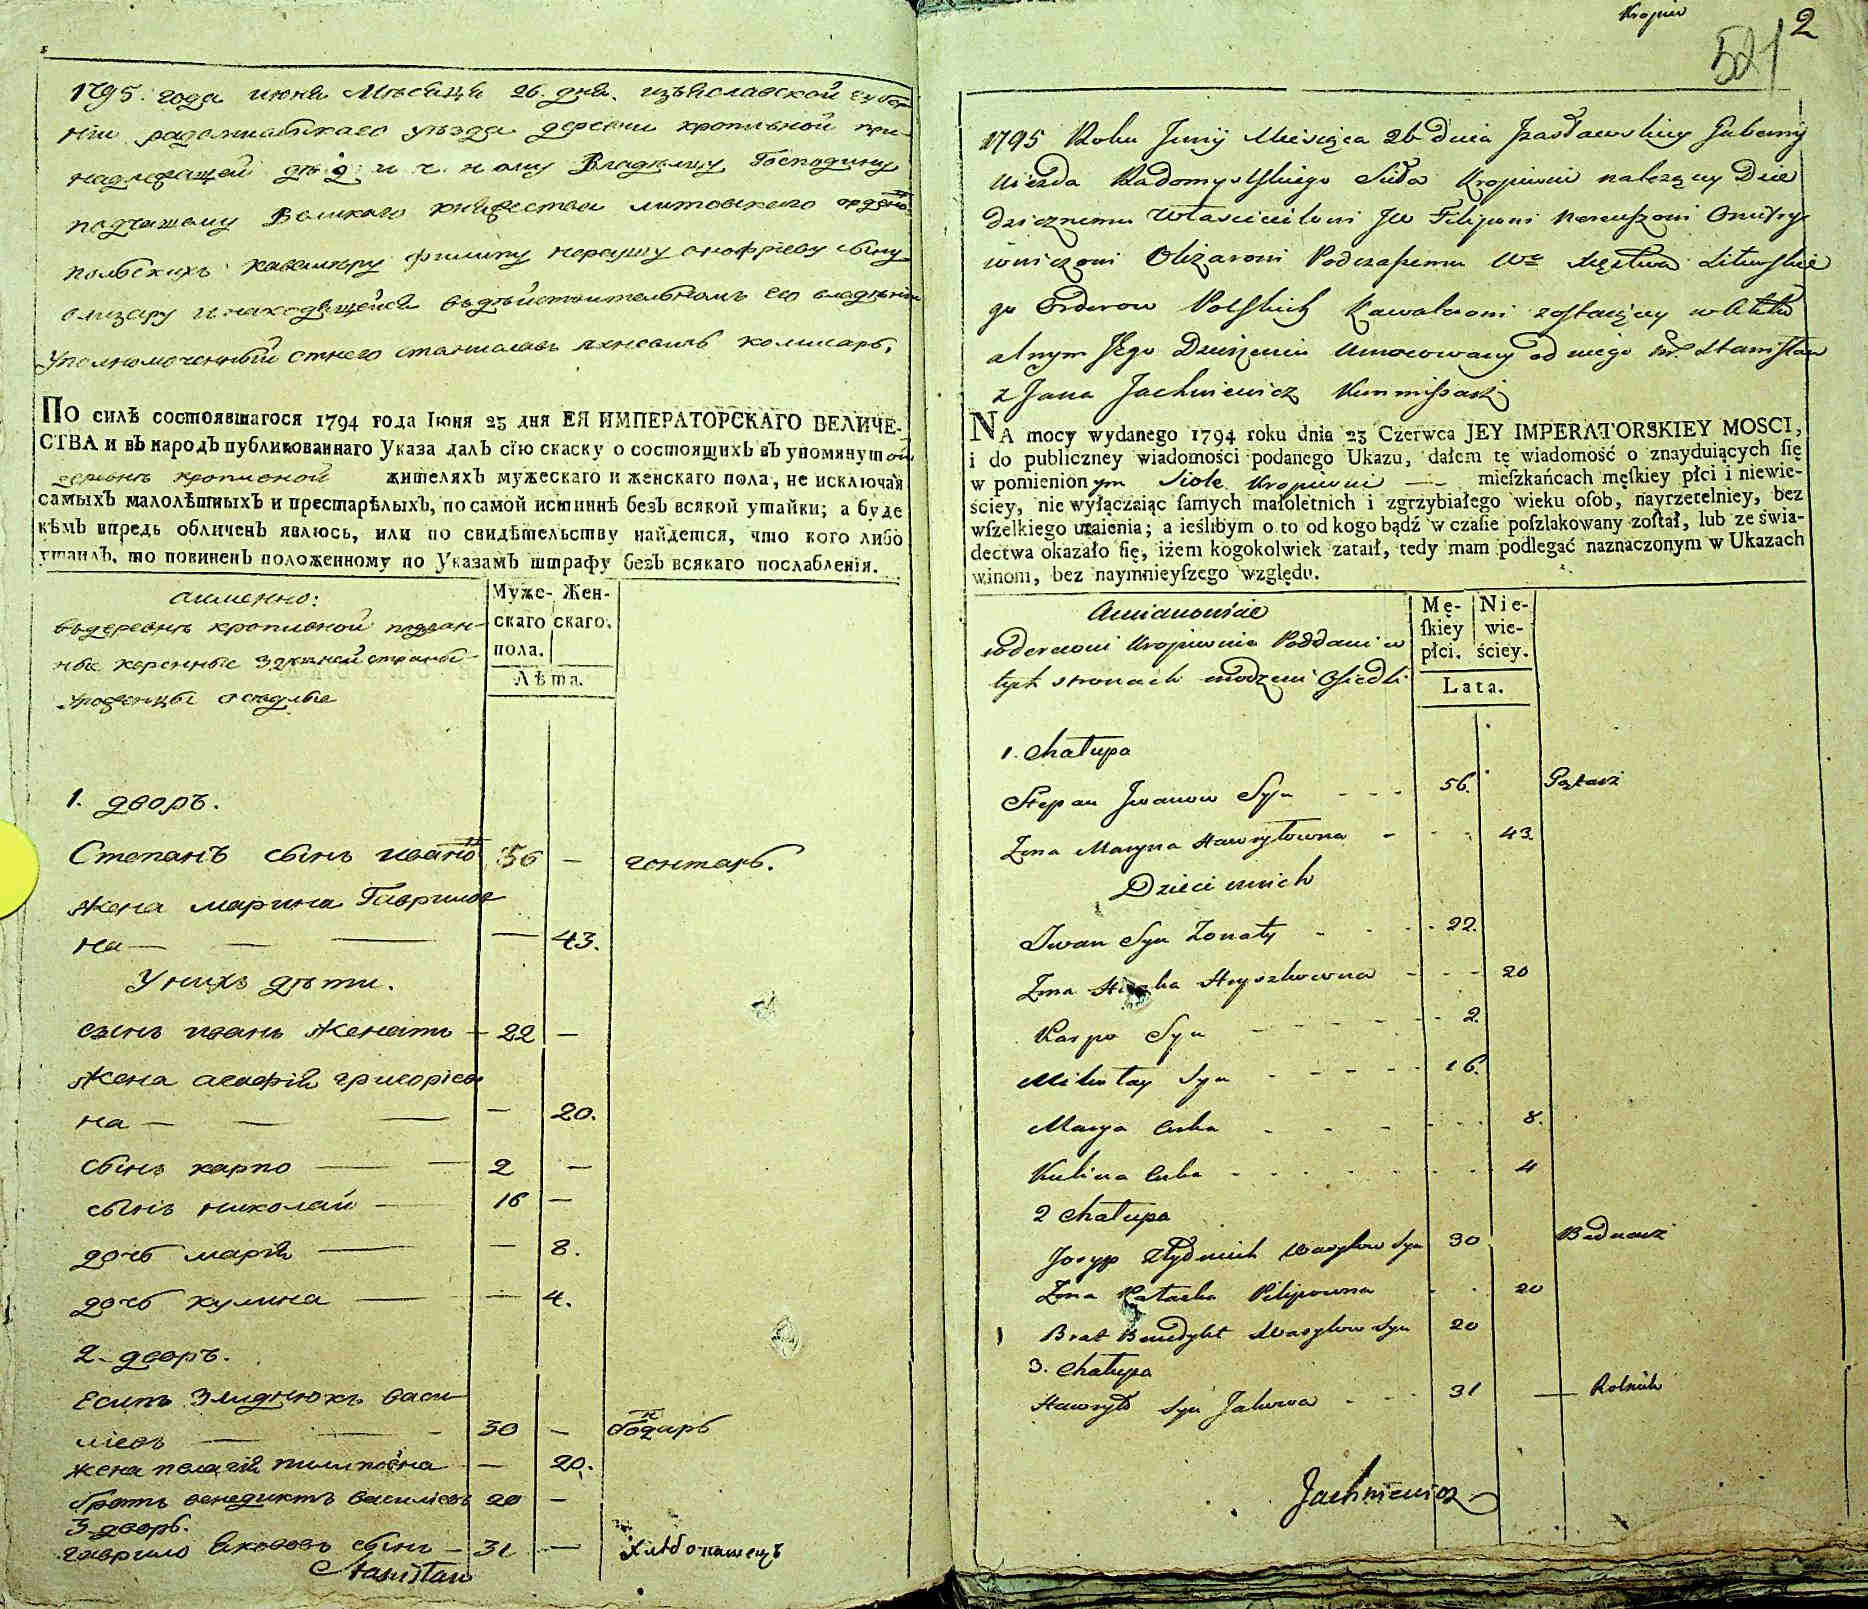 1795. года июня Мѣсяца 26. дня. изъяславской губер
ніи радомысльскаго уѣзда деревни кропивной при-
надлежащей дѣ й и ч. ному Владѣльцу Господину
подчашому Великого княжества литовского ордено
польскихъ кавалеру филипу нерыушу онофріеву сыну
олизару инаходящейся въдѣйствительномъ его владѣніи
Уполномоченный отнего станиславъ яхневичь коммисаръ,
ПО силѣ состоявшагося 1794 года Іюня 23 дня ЕЯ ИМПЕРАТОРСКАГО ВЕЛИЧЕ-
СТВА и въ народъ публикованнаго Указа далъ сію скаску о состоящихъ въ упомянутой
деревнѣ кропивной жителяхъ мужескаго и женскаго пола, не исключая
самыхъ малолѣтныхъ и престарѣлыхъ, по самой истиннѣ безъ всякой утайки; а буде
кѣмъ впредь обличенъ явлюсь, или по свидѣтельству найдется, что кого либо
утаилъ, то повиненъ положенному по Указамъ штрафу безъ всякаго послабленія.
аименно:
въдеревнѣ кропивной поддан-
ные коренные здѣшней страны
уроженцы оседлые
Муже- Жен-
скаго скаго.
пола.
Лѣта.
1. дворъ.
Степанъ сынъ ивано 56 — гонтарь.
жена марина Гаврилов
на — 43.
Унихъ дѣти.
сынъ иванъ женатъ — 22 —
жена агафія григоріев
на — — 20.
сынъ карпо — 2 —
сынъ николай — 16 —
дочь марія — — 8.
дочь кулина — — 4.
2. дворъ.
Есипъ Злиднюхъ васи
ліевъ — 30 — бондарь
жена пелагія пилиповна — 20.
братъ венедиктъ василіевъ 20 —
3 дворъ.
гаврило яковов сынъ — 31 — хлѣбопашецъ
Stanisław
Kropiw
2
521
1795 Roku Junij Miesiąca 26 dnia Jzasławskiey Guberny
Uiezda Radomyslskiego Sioła Kropiwni należący Dzie
dzicznemu Włascicielowi JW Filipowi Nereuszowi Onufry
iewiczowi Olizarowi Podczaszemu Wo Xięstwa Litewskie
go Orderow Polskich Kawalerowi zostaiący w Aktu
alnym Jego Dzierżeniu Umocowany od niego Stanisław
z Jana Jachniewicz Kommissarz
NA mocy wydanego 1794 roku dnia 23 Czerwca JEY IMPERATORSKIEY MOSCI,
i do publiczney wiadomości podanego Ukazu, dałem tę wiadomość o znayduiących się
w pomienionym Siole Kropiwni — mieſzkańcach męſkiey płci i niewie-
ściey, nie wyłączaiąc ſamych małoletnich i zgrzybiałego wieku oſob, nayrzetelniey, bez
wſzelkiego utaienia; a ieślibym o to od kogo bądź w czaſie poſzlakowany został, lub ze świa-
dectwa okazało ſię, iżem kogokolwiek zataił, tedy mam podlegać naznaczonym w Ukazach
winom, bez naymnieyſzego względu.
Amianowicie
wderewni Kropiwnie Poddani w
tych stronach rodzeni Osiedli
Mę- Nie-
ſkiey wie-
płci. ściey.
Lata.
1. Chałupa
Stepan Jwanow Syn - - - 56. Gątarz
Żona Maryna Hawryłowna - - - 43
Dzieci unich
Jwan Syn Żonaty - - - 22.
Żona Hryszkowna - - - 20
Karpo Syn - - - 2.
Mikołay Syn - - - 16.
Marya Curka - - - 8.
Kulina Curka - - - 4
2 Chałupa
Josyp Złydniuk Wasylow Syn 30 Bednarz
Żona Pilipowna - - 20
Brat Benedykt Wasylow Syn 20
3. Chałupa
Hawryło Syn Jakowa - - - 31 — Rolnik
Jachniewicz